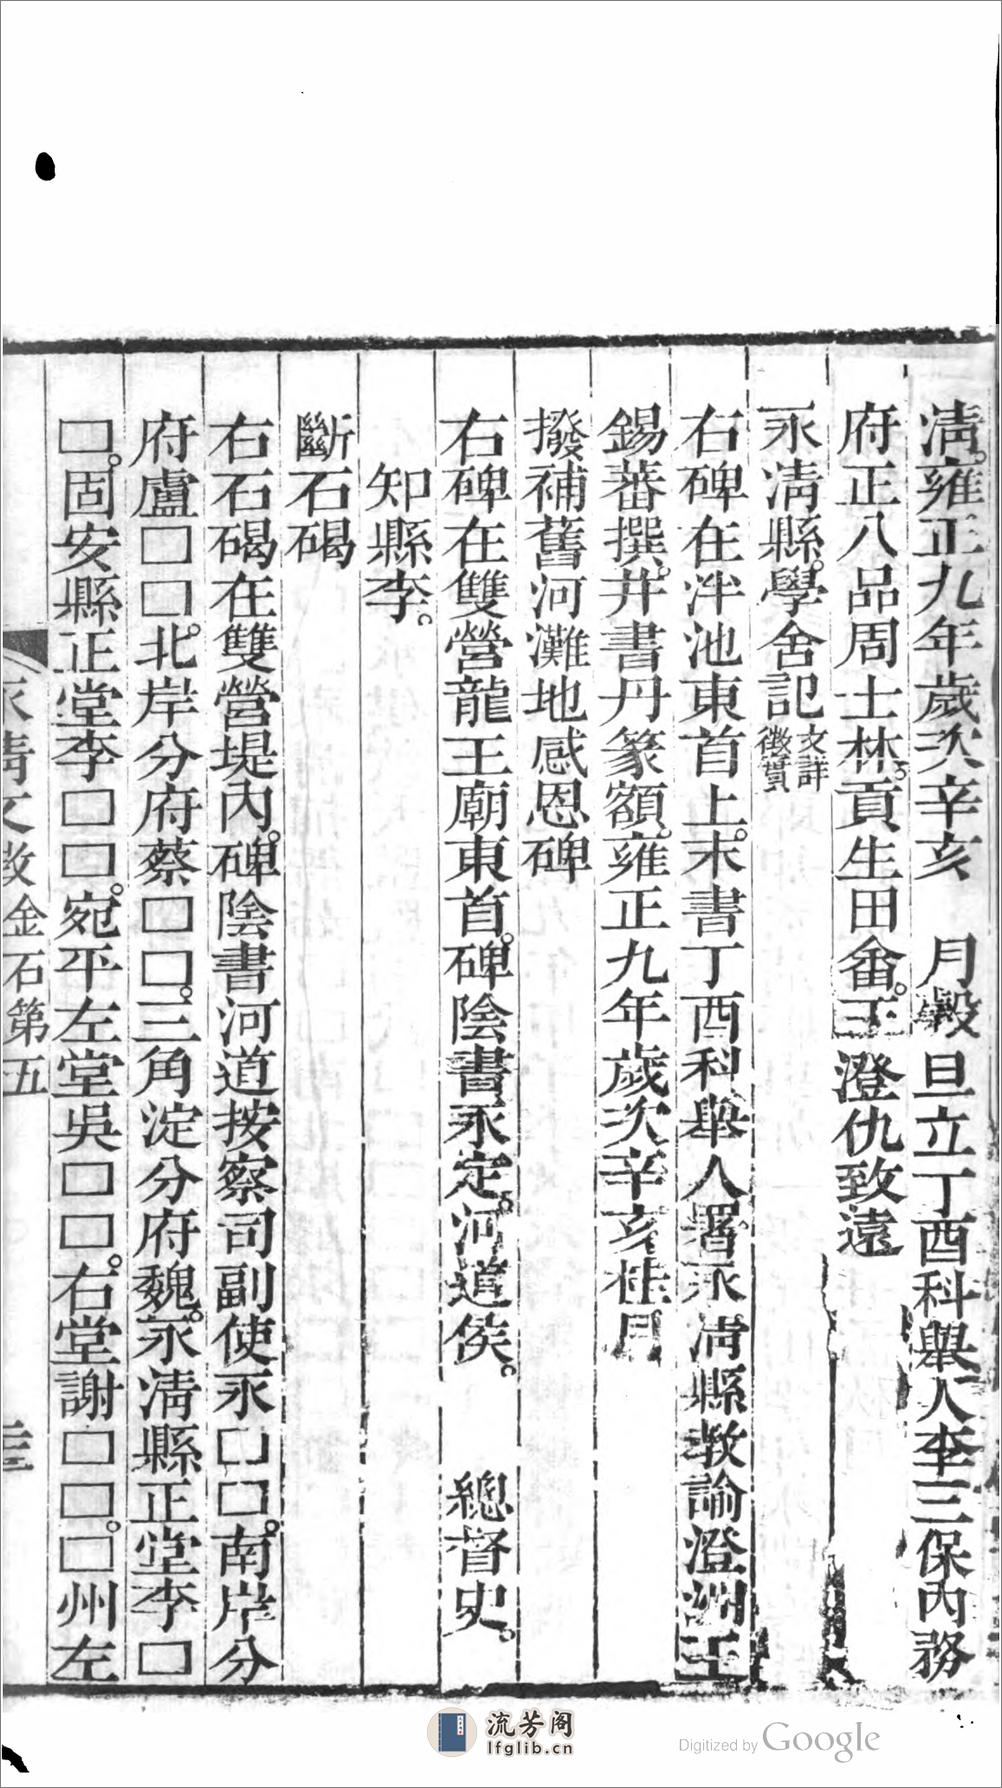 清。雍正九年歲次辛亥　月穀旦立丁酉科舉人李三保內務
府正八品周士林。貢生田畬。王澄仇致遠
永清縣。學舍記文詳徵實
右碑在泮池東首上。末書丁酉科舉人署永清縣教諭澄洲王
錫蕃撰。并書丹篆額。雍正九年歲次辛亥桂月
撥補舊河灘地感恩碑
右碑在雙營龍王廟東首。碑陰書永定。河道侯。　總督史。
知縣李。
斷石碣
右石碣在雙營堤內。碑陰書河道按察司副使永□□。南岸分
府盧□□。北岸分府蔡□□。三角淀分府魏。永清縣正堂李□
□。固安縣正堂李□□。宛平左堂吳□□。右堂謝□□。□州左
永清文徵金石第五
流芳阁
lfglib.cn
Digitized by Google